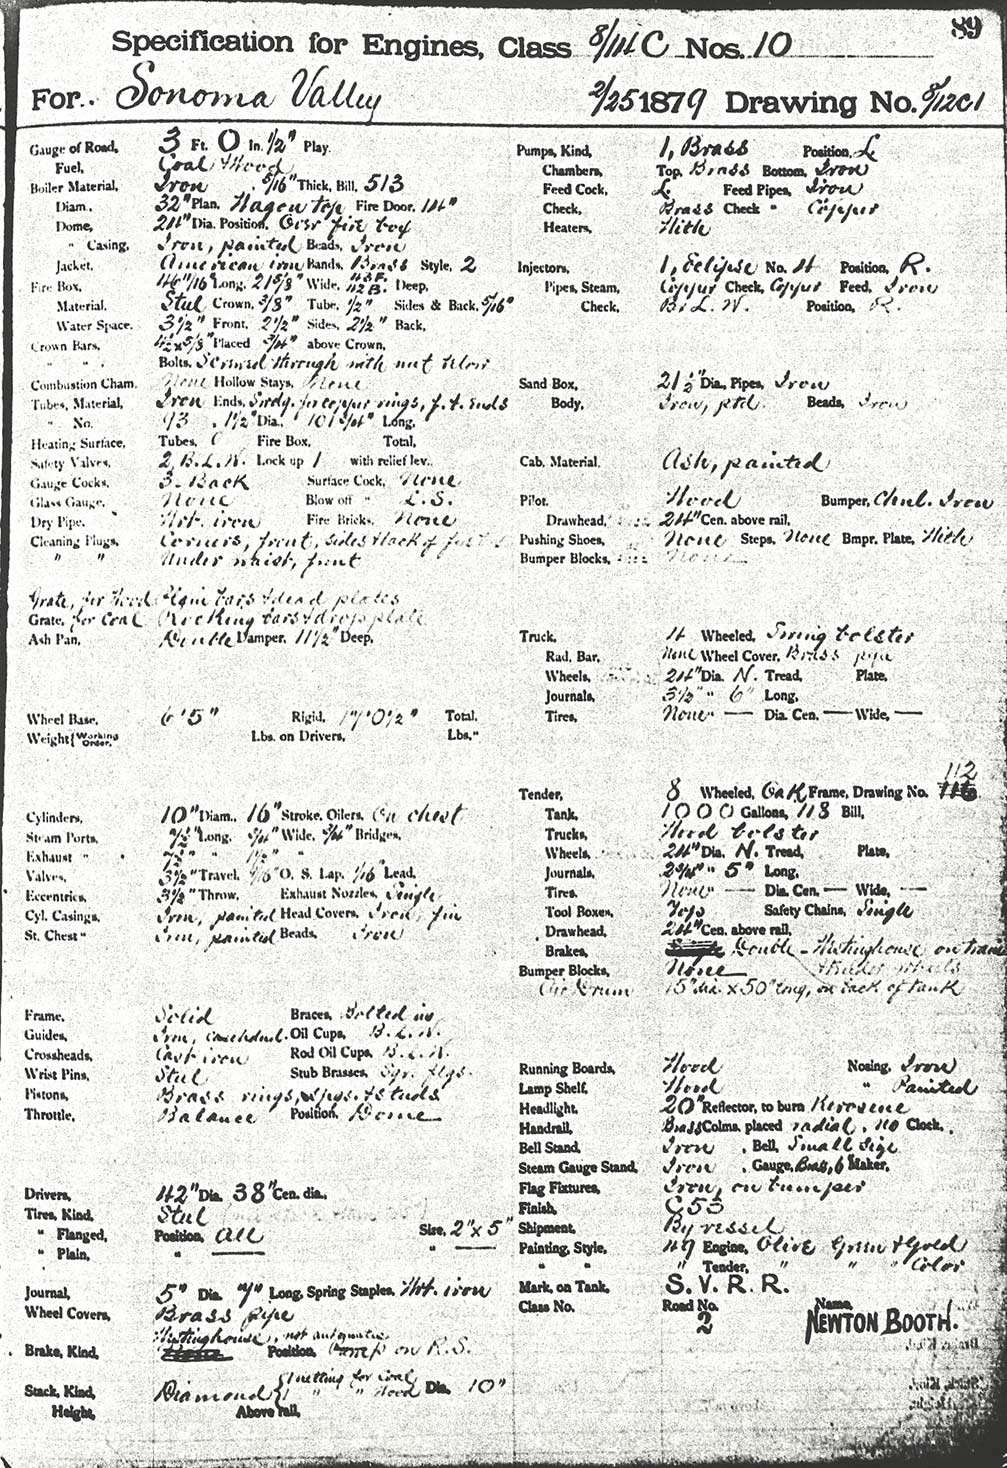 89
Specification for Engines, Class 8/14 C Nos. 10
For. Sonoma Valley 2/25 1879 Drawing No. 8/12C1
Gauge of Road, 3 Ft. 0 In. 1/2" Play.
Fuel, Coal & Wood
Boiler Material, Iron 5/16" Thick, Bill, 513
Diam., 32" Plan, Wagon top Fire Door, 14"
Dome, 24" Dia. Position, Over fire box
" Casing, Iron, painted Beads, Iron
Jacket, American iron Bands, Brass Style, 2
Fire Box, 46 11/16" Long, 21 5/8" Wide, 43 F. 42 B. Deep,
Material, Steel Crown, 3/8" Tube, 1/2" Sides & Back, 5/16"
Water Space, 3 1/2" Front, 2 1/2" Sides, 2 1/2" Back,
Crown Bars, 4 1/2 x 5/8" Placed 3/4" above Crown,
" " Bolts, Screwed through with nut below
Combustion Cham. None Hollow Stays, None
Tubes, Material, Iron Ends, Swdg. for copper rings, f. & ends
" No. 93 . 1 1/2" Dia., 101 3/4" Long,
Heating Surface, Tubes, Fire Box, Total,
Safety Valves, 2, B. L. W. Lock up 1 with relief lev.,
Gauge Cocks, 3. Back Surface Cock, None
Glass Gauge, None Blow off " L. S.
Dry Pipe, Wrt. iron Fire Bricks, None
Cleaning Plugs, Corners, front, sides & back of
" " Under waist, front
Grate, for Wood Plain bars & dead plates
Grate, for Coal Rocking bars & drop plate
Ash Pan, Double Damper, 11 1/2" Deep,
Wheel Base, 6' 5" Rigid, 17' 0 1/2" Total.
Weight { Working Order. Lbs. on Drivers, Lbs."
Cylinders, 10" Diam., 16" Stroke, Oilers, On chest
Steam Ports, 7 1/2" Long, 3/4" Wide, 3/4" Bridges,
Exhaust " 7 1/2" " 1 1/2" "
Valves, 3 1/2" Travel, O. S. Lap, 1/16" Lead,
Eccentrics, 3 1/2" Throw, Exhaust Nozzles, Single
Cyl. Casings, Iron, painted Head Covers, Iron, fin
St. Chest " Iron, painted Beads, Iron
Frame, Solid Braces, Bolted in
Guides, Iron, casehdnd. Oil Cups, B. L. W.
Crossheads, Cast iron Rod Oil Cups, B. L. W.
Wrist Pins, Steel Stub Brasses, Sqr. flgs.
Pistons, Brass rings, spgs. & studs
Throttle, Balance Position, Dome
Drivers, 42" Dia. 38" Cen. dia.,
Tires, Kind, Steel
" Flanged, Position, All Size, 2" x 5"
" Plain, " "
Journal, 5" Dia. 7" Long, Spring Staples, Wrt. iron
Wheel Covers, Brass pipe
Westinghouse, not automatic
Brake, Kind, Position, Pump on R. S.
Stack, Kind, Diamond { 1 netting for Coal 1 " " Wood Dia. 10"
Height, Above rail,
Pumps, Kind, 1, Brass Position, L
Chambers, Top, Brass Bottom, Iron
Feed Cock, L. Feed Pipes, Iron
Check, Brass Check " Copper
Heaters, With
Injectors, 1, Eclipse No. 4 Position, R.
Pipes, Steam, Copper Check, Copper Feed, Iron
Check, B. L. W. Position, R.
Sand Box, 21 1/2" Dia., Pipes, Iron
Body, Iron, ptd. Beads, Iron
Cab, Material, Ash, painted
Pilot, Wood Bumper, Chnl. Iron
Drawhead, 24" Cen. above rail,
Pushing Shoes, None Steps, None Bmpr. Plate, With
Bumper Blocks, None
Truck, 4 Wheeled, Swing bolster
Rad. Bar, None Wheel Cover, Brass pipe
Wheels, 24" Dia. N. Tread, Plate,
Journals, 3 1/2" " 6" Long,
Tires, None — Dia. Cen. — Wide, —
112
Tender, 8 Wheeled, Oak Frame, Drawing No.
Tank, 1000 Gallons, 118 Bill,
Trucks, Wood bolster
Wheels, 24" Dia. N. Tread, Plate,
Journals, 2 3/4" " 5" Long,
Tires, None — Dia. Cen. — Wide, —
Tool Boxes, Safety Chains, Single
Drawhead, 24" Cen. above rail,
Brakes, Double - Westinghouse on
Bumper Blocks, None & tender wheels
Air Drum 15" dia. x 50" long, on back of tank
Running Boards, Wood Nosing, Iron
Lamp Shelf, Wood " Painted
Headlight, 20" Reflector, to burn Kerosene
Handrail, Brass Colms. placed radial, no Clock,
Bell Stand, Iron , Bell, Small size
Steam Gauge Stand, Iron , Gauge, Brass, 6 Maker,
Flag Fixtures, Iron, on bumper
Finish, C53
Shipment, By vessel
Painting, Style, 49 Engine, Olive Green & Gold
" " " Tender, " " " Color
Mark, on Tank, S. V. R. R.
Class No. Road No. 2 Name, NEWTON BOOTH.